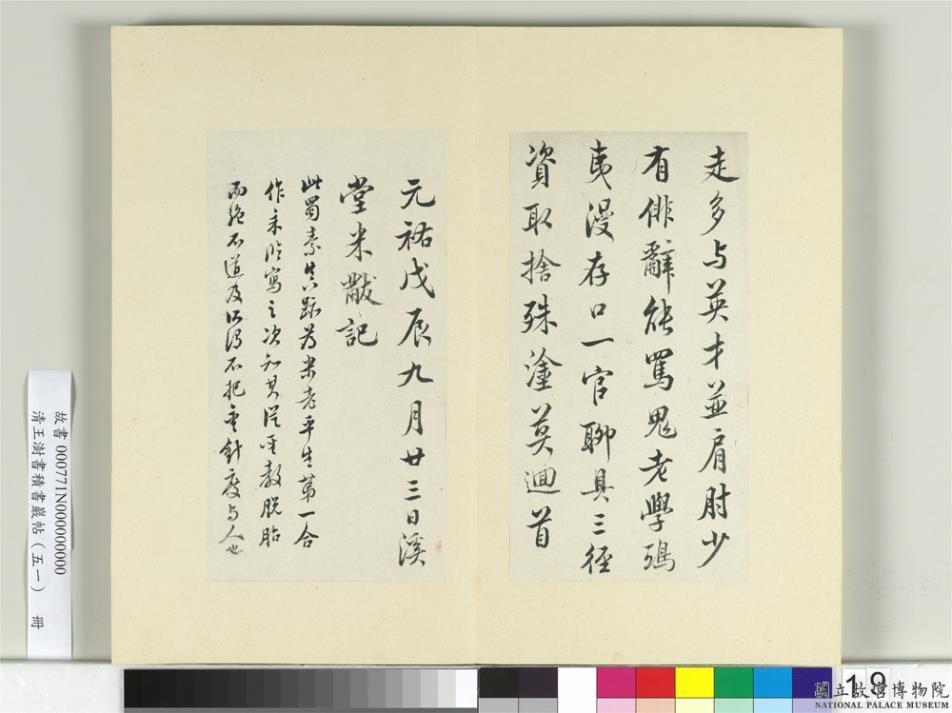 走多与英才並肩肘少
有俳辭能罵鬼老學鴟
夷漫存口一官聊具三徑
資取捨殊塗莫迴首
元祐戊辰九月廿三日溪
堂米黻記
此蜀素真跡為米老平生第一合
作余臨寫之次知其從聖教脫胎
而絶不道及以得不把金針度与人也
故書 000771N000000000
清王澍書積書巖帖（五一） 冊
19
國立故宮博物院
NATIONAL PALACE MUSEUM